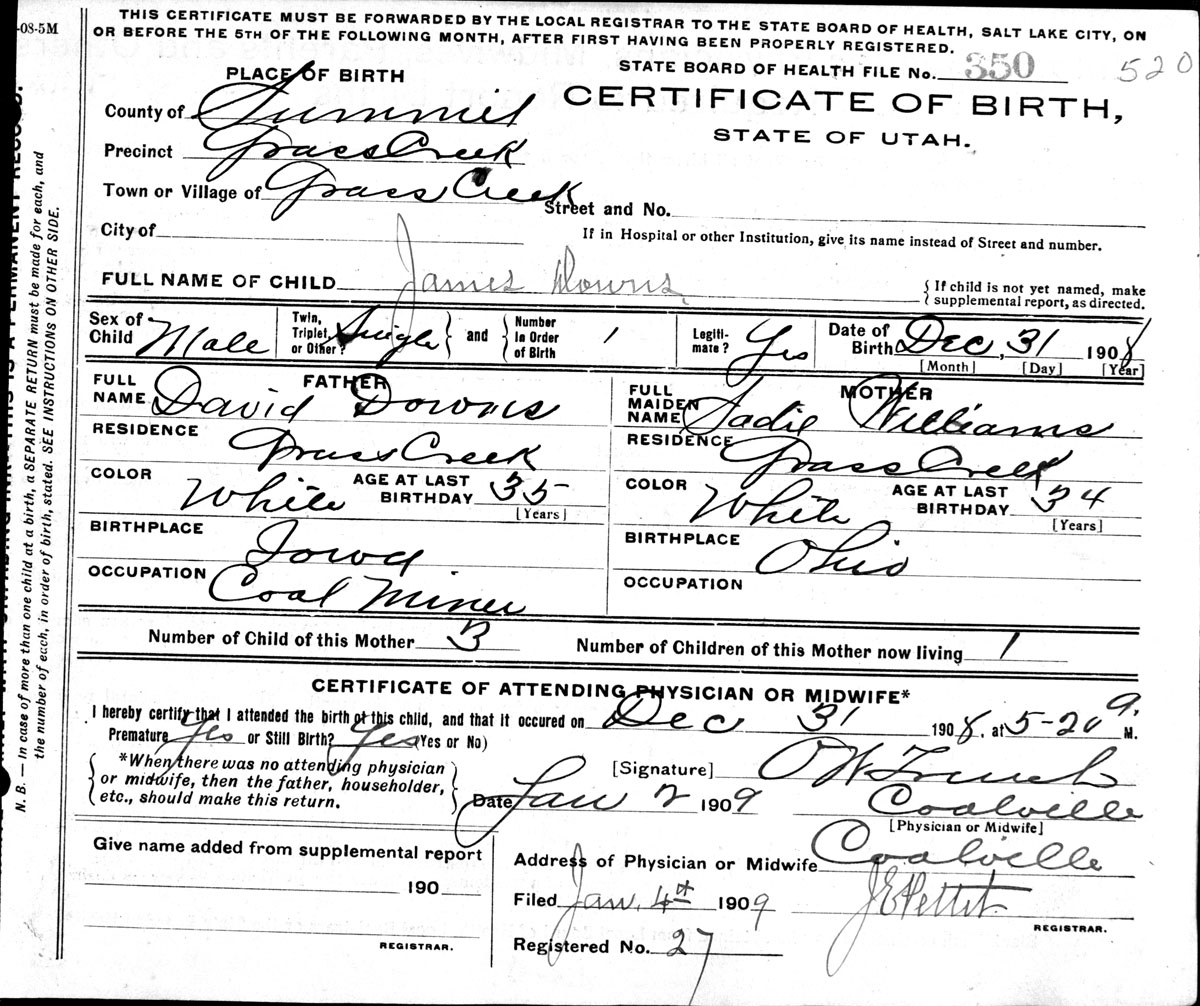 -08-5M
THIS CERTIFICATE MUST BE FORWARDED BY THE LOCAL REGISTRAR TO THE STATE BOARD OF HEALTH, SALT LAKE CITY, ON
OR BEFORE THE 5TH OF THE FOLLOWING MONTH, AFTER FIRST HAVING BEEN PROPERLY REGISTERED.
STATE BOARD OF HEALTH FILE No. 350 520
PLACE OF BIRTH
CERTIFICATE OF BIRTH,
STATE OF UTAH.
County of Summit
Precinct Grass Creek
Town or Village of Grass Creek
Street and No.
City of
If in Hospital or other Institution, give its name instead of Street and number.
FULL NAME OF CHILD James Downs
{ If child is not yet named, make
supplemental report, as directed.
Sex of Child Male Twin, Triplet, or Other? Single } and { Number in Order of Birth 1 Legiti-mate? Yes Date of Birth Dec, 31 1908
[Month] [Day] [Year]
FATHER
FULL NAME David Downs
RESIDENCE Grass Creek
COLOR White AGE AT LAST BIRTHDAY 35
[Years]
BIRTHPLACE Iowa
OCCUPATION Coal Miner
MOTHER
FULL MAIDEN NAME Sadie Williams
RESIDENCE Grass Creek
COLOR White AGE AT LAST BIRTHDAY 34
[Years]
BIRTHPLACE Ohio
OCCUPATION
Number of Child of this Mother 3 Number of Children of this Mother now living 1
CERTIFICATE OF ATTENDING PHYSICIAN OR MIDWIFE*
I hereby certify that I attended the birth of this child, and that it occured on Dec 31 1908, at 5-20 M.
Premature Yes or Still Birth? Yes (Yes or No)
*When there was no attending physician
or midwife, then the father, householder,
etc., should make this return.
[Signature] O W
Date Jan 2 1909 Coalville
[Physician or Midwife]
Give name added from supplemental report
190
REGISTRAR.
Address of Physician or Midwife Coalville
Filed Jan. 4th 1909 J E Pettit
REGISTRAR.
Registered No. 27
N. B. — In case of more than one child at a birth, a SEPARATE RETURN must be made for each, and
the number of each, in order of birth, stated. SEE INSTRUCTIONS ON OTHER SIDE.